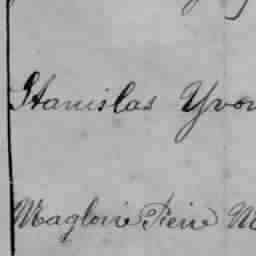 Stanislas Yvon
Magloire Pierre M